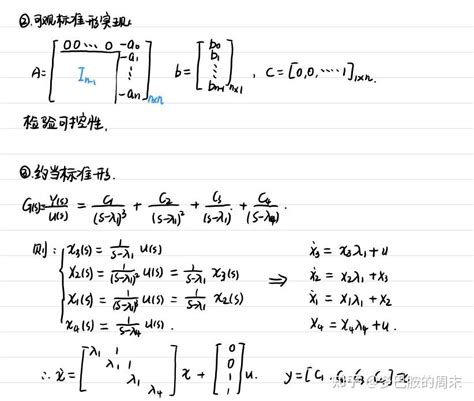 ②可观标准形实现:
A=[0 0 ⋯ 0 -a₀; Iₙ₋₁ -a₁ ⋮ -aₙ]ₙₓₙ b=[b₀ b₁ ⋮ bₙ₋₁]ₙₓ₁, C=[0,0,⋯⋅1]₁ₓₙ.
检验可控性.
③约当标准形.
G(s)=Y(s)/U(s)=C₁/(s-λ₁)³+C₂/(s-λ₁)²+C₃/(s-λ₁)+C₄/(s-λ₄).
则: x₃(s)=1/(s-λ₁) U(s) ẋ₃=x₃λ₁+u
x₂(s)=1/(s-λ₁)² U(s)=1/(s-λ₁) x₃(s) ⇒ ẋ₂=x₂λ₁+x₃
x₁(s)=1/(s-λ₁)³ U(s)=1/(s-λ₁) x₂(s) ẋ₁=x₁λ₁+x₂
x₄(s)=1/(s-λ₄) U(s). ẋ₄=x₄λ₄+u.
∴ ẋ=[λ₁ 1; λ₁ 1; λ₁; λ₄]x+[0 0 1 1]u. y=[C₁ C₂ C₃ C₄]x
知乎 @多巴胺的周末